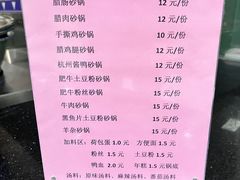 腊肠砂锅 12 元/份
腊肉砂锅 12 元/份
手撕鸡砂锅 10 元/份
腊鸡腿砂锅 12 元/份
杭州酱鸭砂锅 12 元/份
肥牛土豆粉砂锅 15 元/份
肥牛粉丝砂锅 15 元/份
牛肉砂锅 15 元/份
黑鱼片土豆粉砂锅 15 元/份
羊杂砂锅 15 元/份
加料区：荷包蛋 1.0 元 方便面 1.5 元
粉丝 1.5 元 土豆粉 1.5 元
鸭血 2.0 元 年糕 1.5 元锅底
汤料：原味汤料、麻辣汤料、番茄汤料